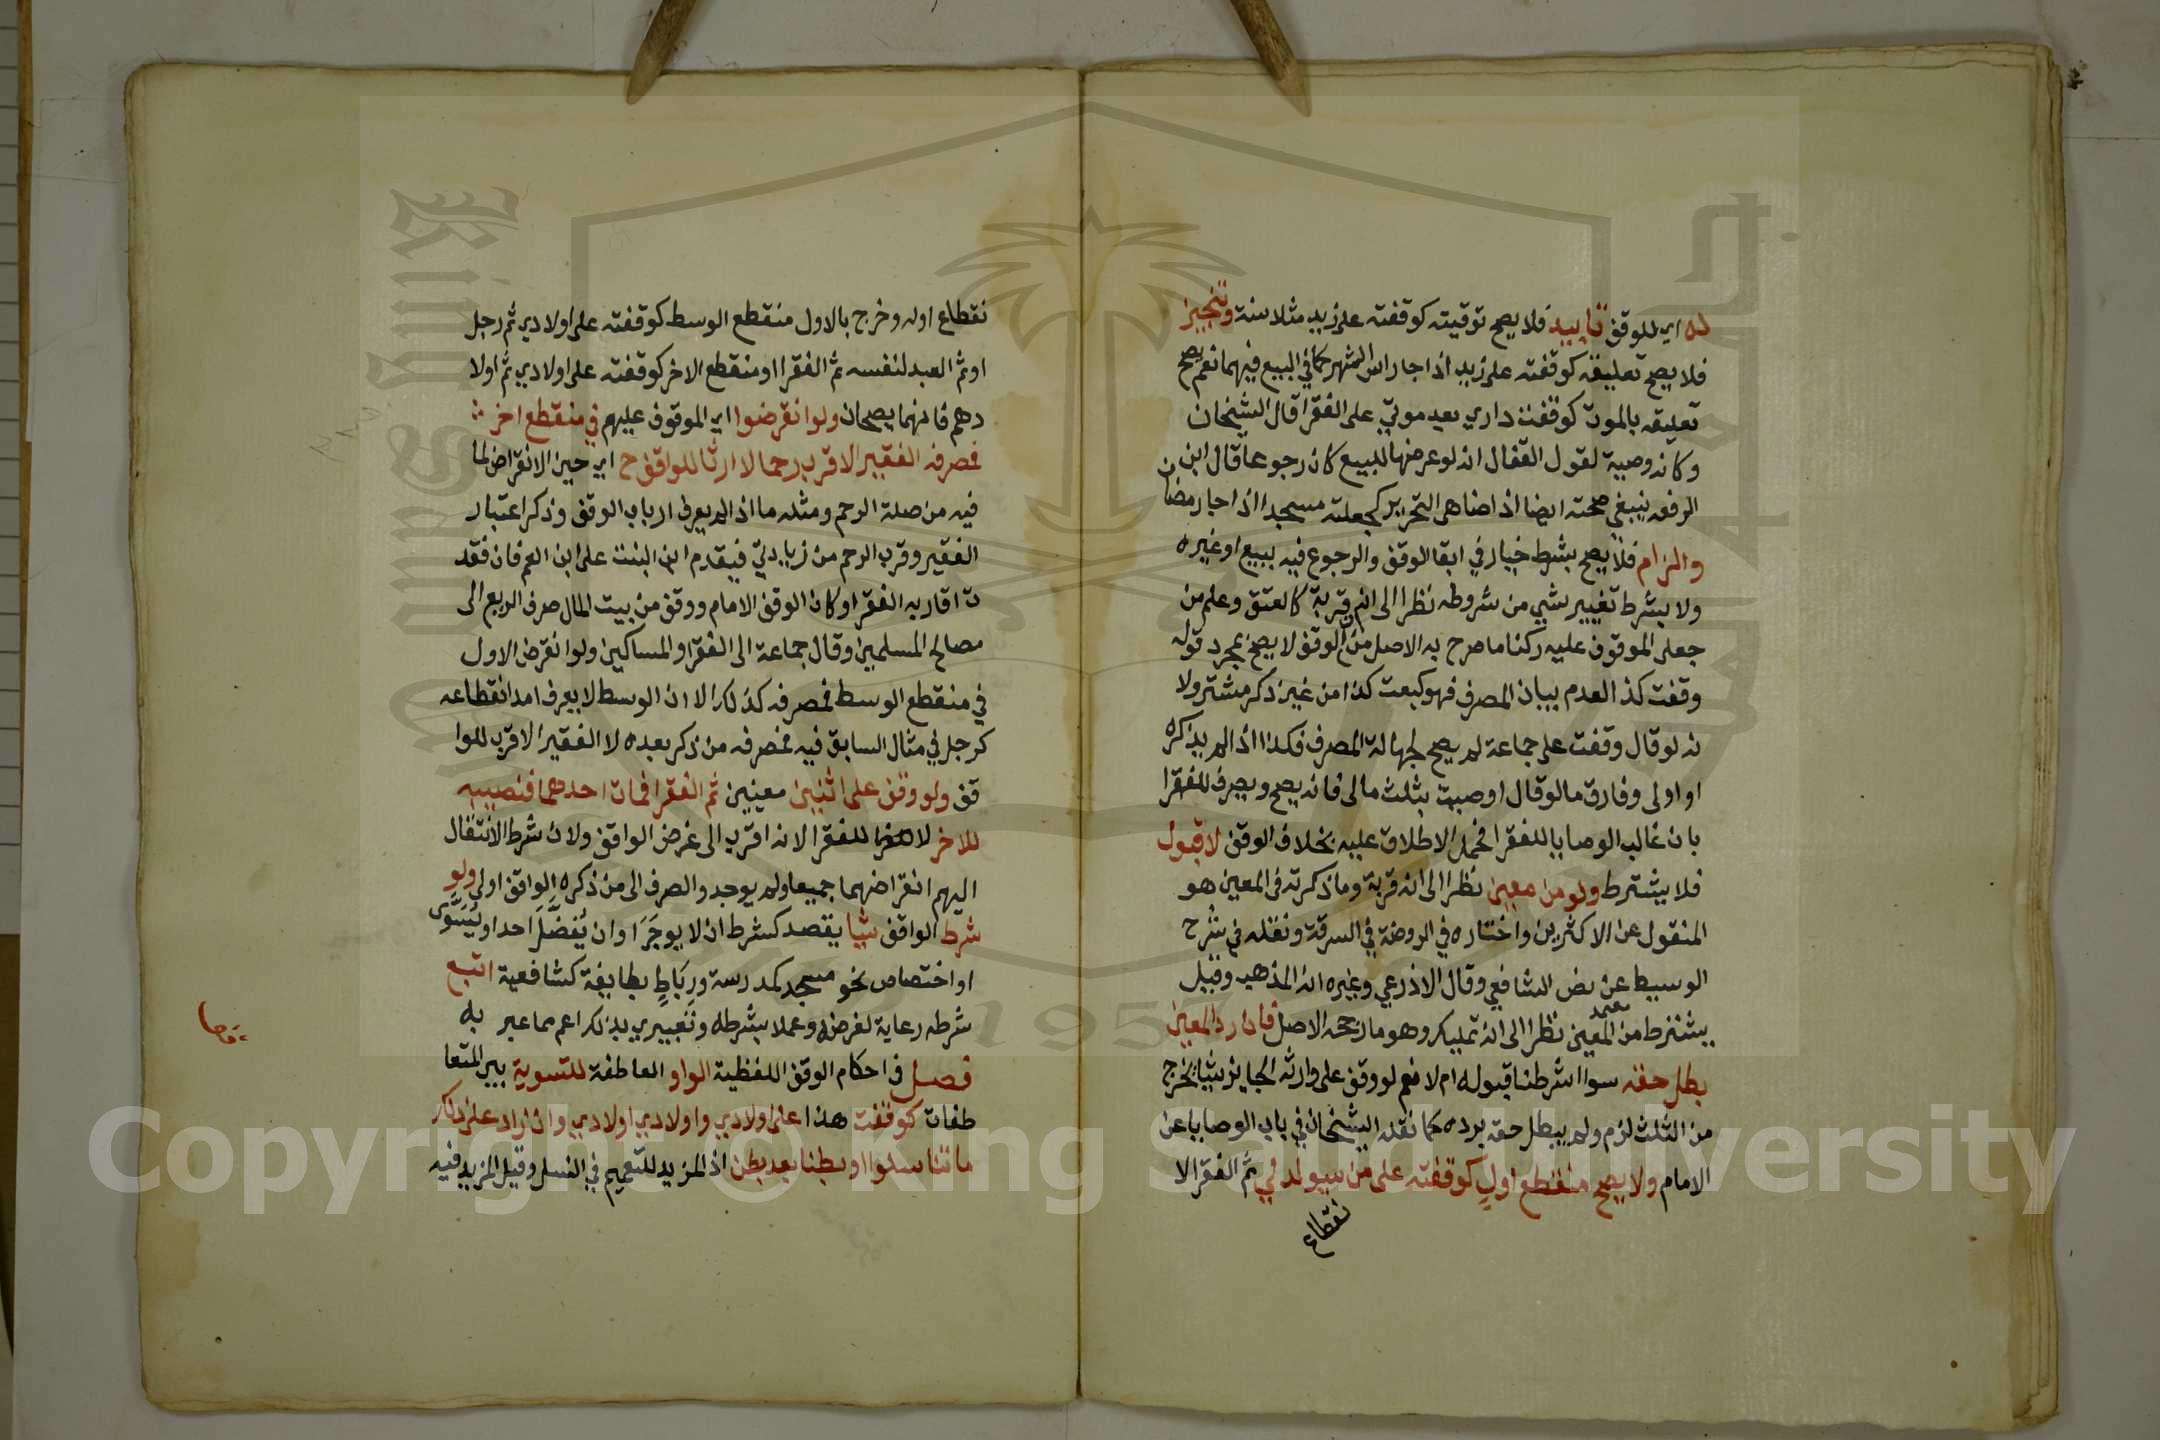 له اي للوقف تابيد فلا يصح توقيته كوقفته على زيد مثلا سنة وتنجيز
فلا يصح تعليقه كوقفته على زيد اذا جا راس الشهر كما في البيع فيهما نعم يصح
تعليقه بالموت كوقفت داري بعد موتي على الفقرا قال الشيخان
وكانه وصية لقول القفال انه لو عرضها للبيع كان رجوعا قال ابن
الرفعه ينبغي صحته ايضا اذا ضاهى التحرير كجعلته مسجدا اذا جا رمضان
والزام فلا يصح بشرط خيار في ابقا الوقف والرجوع فيه ببيع او غيره
ولا بشرط تغيير شي من شروطه نظرا الى انه قربة كالعتق وعلم من
جعلى الموقوف عليه ركنا ما صرح به الاصل من ان الوقف لا يصح بمجرد قوله
وقفت كذا لعدم بيان المصرف فهو كبعت كذا من غير ذكر مشتر ولا
نه لو قال وقفت على جماعة لم يصح لجهالة المصرف فكذا اذا لم يذكره
او اولى وفارق ما لو قال اوصيت بثلث مالى فانه يصح ويصرف للفقرا
بان غالب الوصايا للفقرا فحمل الاطلاق عليه بخلاف الوقف لا قبول
فلا يشترط ولو من معين نظرا الى انه قربة وما ذكرته في المعين هو
المنقول عن الاكثرين واختاره في الروضة في السرقة ونقله في شرح
الوسيط عن نص الشافعي وقال الاذرعي وغيره انه المذهب وقيل
يشترط من المعين نظرا الى انه تمليك وهو ما رجحه الاصل فان رد المعين
بطل حقه سوا اشرطنا قبوله ام لا نعم لو وقف على وارثه الحايز شيا يخرج
من الثلث لزم ولم يبطل حقه برده كما نقله الشيخان في باب الوصايا عن
الامام ولا يصح منقطع اول كوقفته على من سيولد لي ثم الفقرا لا
نقطاع
نقطاع اوله وخرج بالاول منقطع الوسط كوقفته على اولادي ثم رجل
او ثم العبد لنفسه ثم الفقرا او منقطع الاخر كوقفته على اولادي ثم اولا
دهم فانهما يصحان ولو انقرضوا اي الموقوف عليهم في منقطع اخر
فمصرفه الفقير الاقرب رحما لا ارثا للواقف ح اي حين الانقراض لما
فيه من صلة الرحم ومثله ما اذا لم يعرف ارباب الوقف وذكر اعتبار
الفقير وقرب الرحم من زيادتي فيقدم ابن البنت على ابن العم فان فقد
ت اقاربه الفقرا وكان الوقف الامام ووقف من بيت المال صرف الريع الى
مصالح المسلمين وقال جماعة الى الفقرا والمساكين ولو انقرض الاول
في منقطع الوسط فمصرفه كذلك الا ان الوسط لا يعرف امد انقطاعه
كرجل في مثال السابق فيه فمصرفه من ذكر بعده لا الفقير الاقرب للوا
قف ولو وقف على اثنين معينين ثم الفقرا فمات احدهما فنصيبه
للاخر لا للفقرا لانه اقرب الى غرض الواقف ولان شرط الانتقال
اليهم انقراضهما جميعا ولم يوجد والصرف الى من ذكره الواقف اولى ولو
شرط الواقف شيا يقصد كشرط ان لا يوجر او ان يفضل احد او يسوى
او اختصاص نحو مسجد كمدرسة ورباط بطايفة كشافعية اتبع
شرطه رعاية لغرضه وعملا بشرطه وتعبيري بذلك اعم مما عبر به
فصل في احكام الوقف اللفظية الواو العاطفة للتسوية بين المتعا
طفات كوقفت هذا على اولادي واولادي اولادي وان زاد على ذلك
ما تناسلوا او بطنا بعد بطن اذ المزيد للتعميم في النسل وقيل المزيد فيه
Copyright © King Saud University
1957